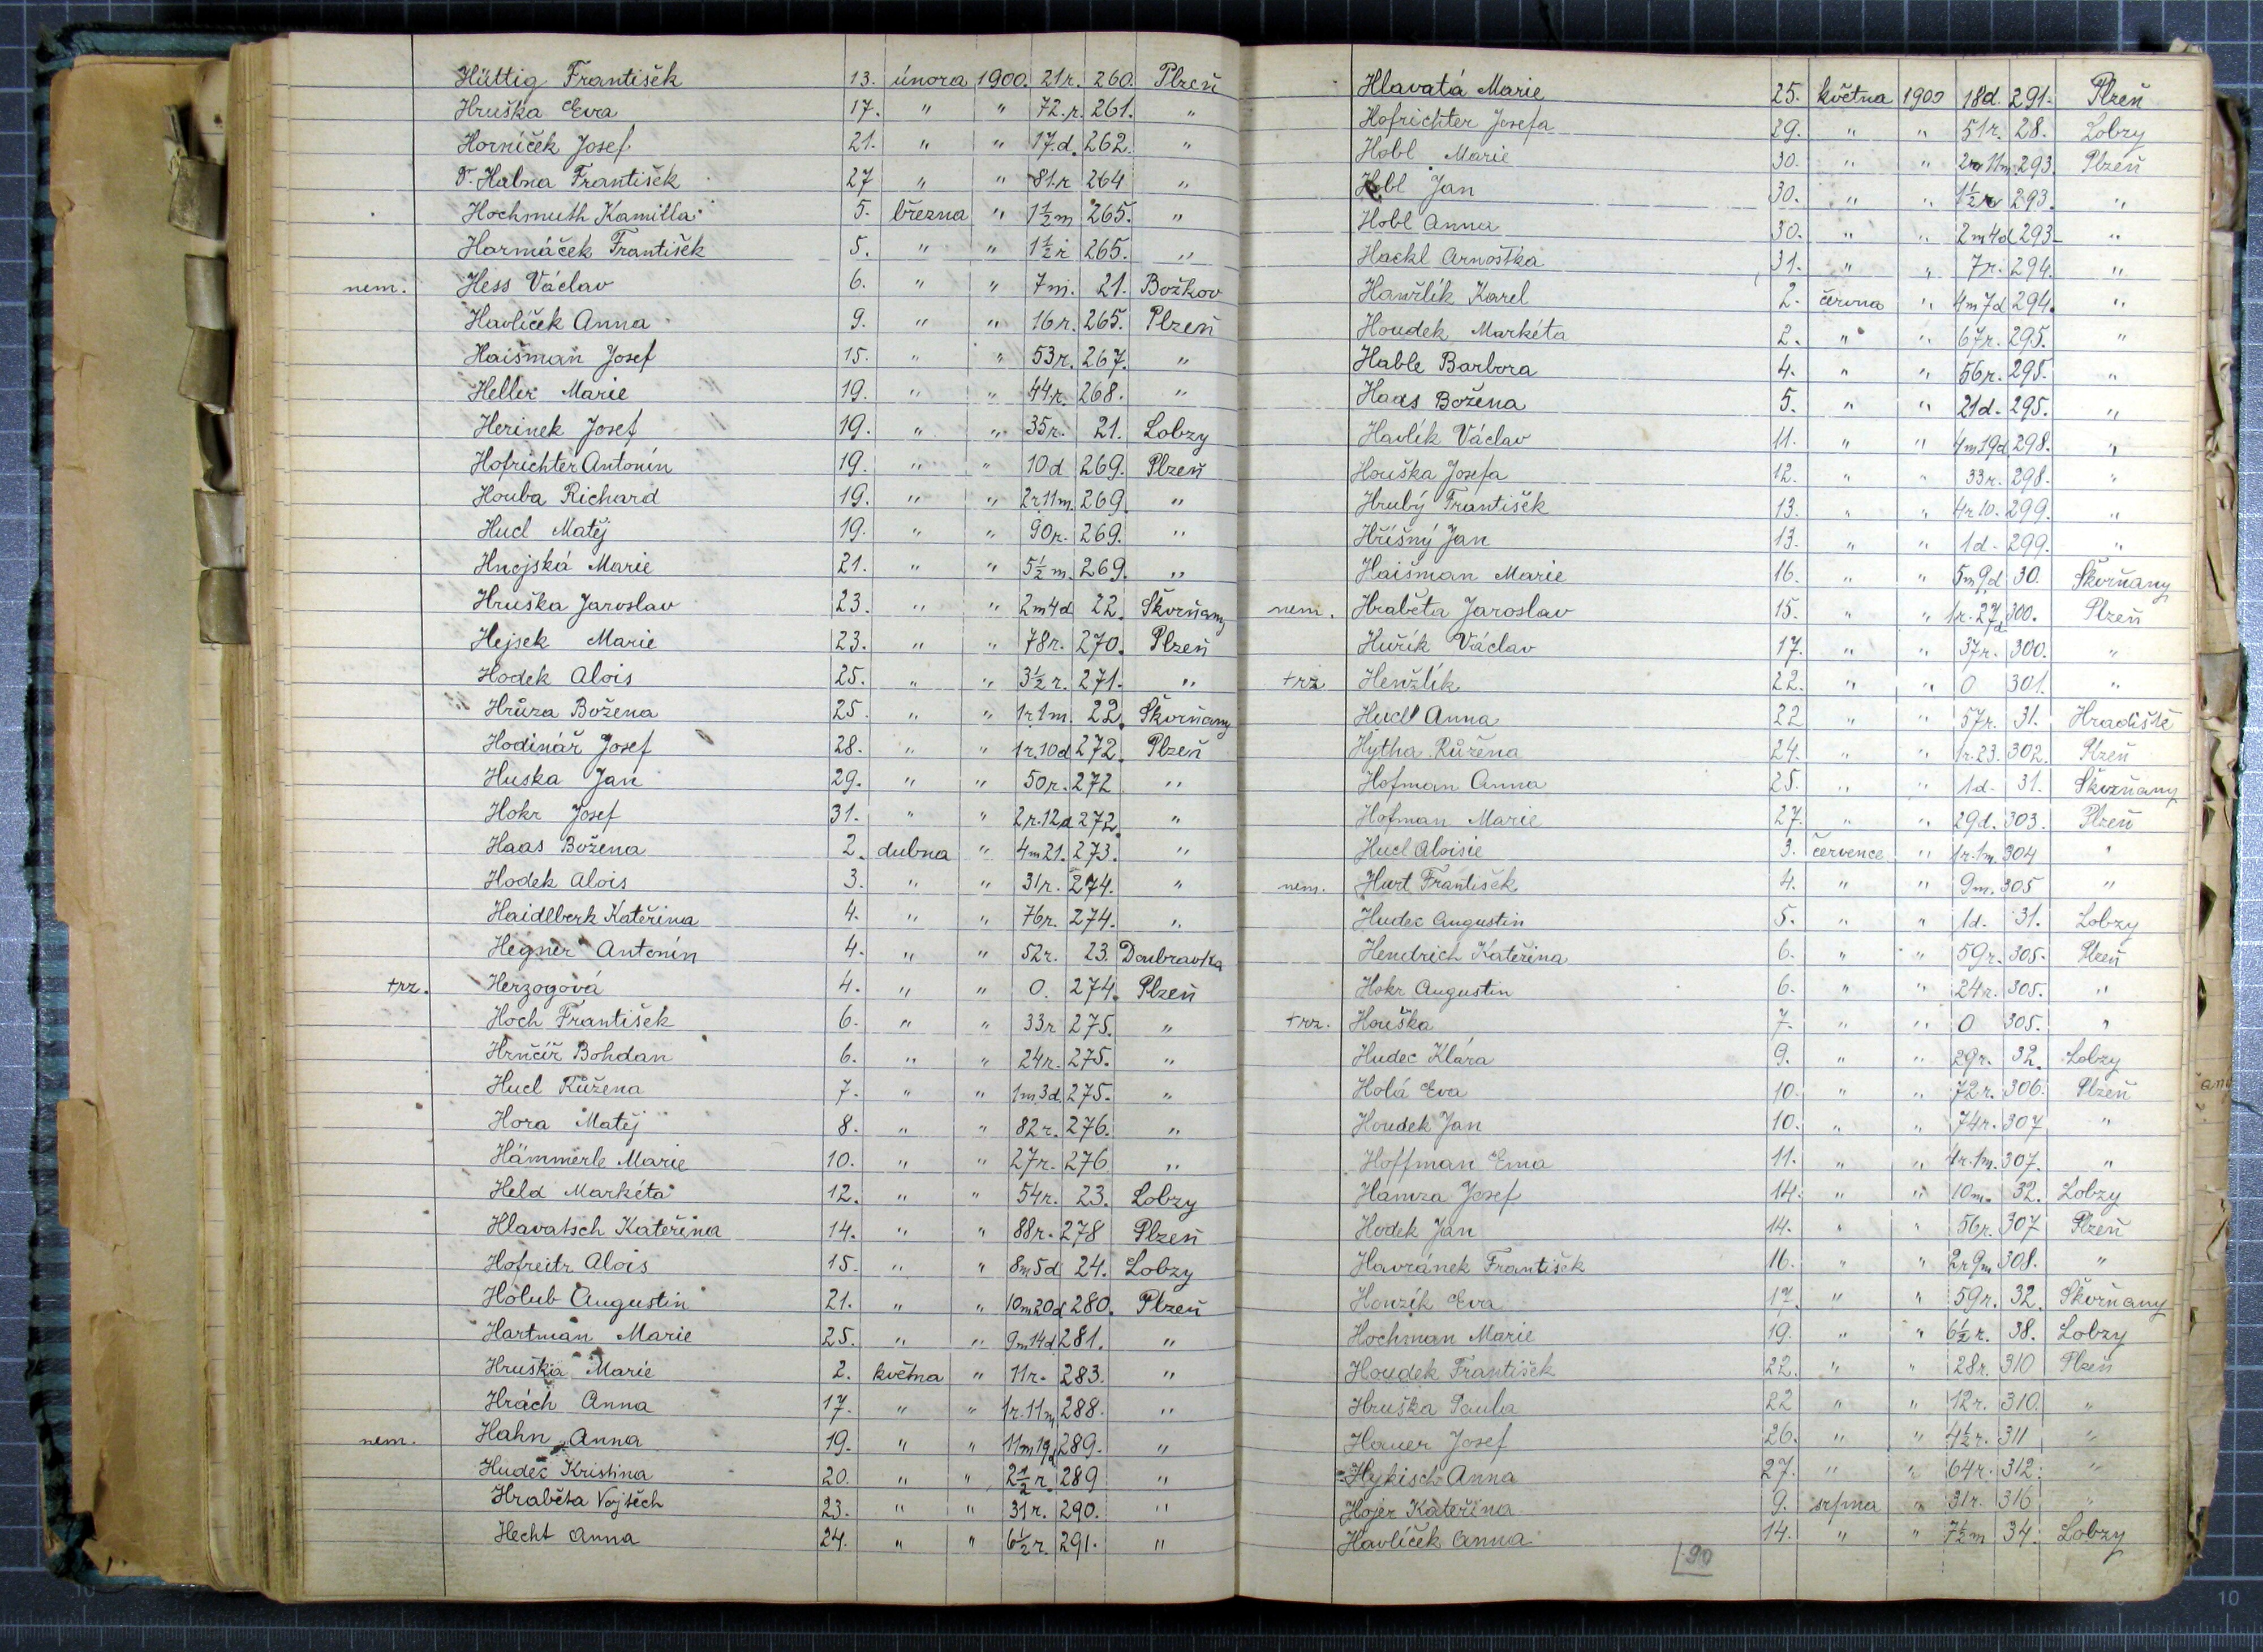 Hüttig František 13. února 1900. 21r. 260. Plzeň
Hruška Eva 17. " " 72.r. 261. "
Horníček Josef 21. " " 17.d. 262. "
Dr. Habna František 27 " " 81.r 264 "
Hochmuth Kamilla 5. března " 1½m 265. "
Harmáček František 5. " " 1½r 265. "
nem. Hess Václav 6. " " 7m. 21. Božkov
Havlíček Anna 9. " " 16r. 265. Plzeň
Haišman Josef 15. " " 53r. 267. "
Heller Marie 19. " " 44r. 268. "
Herinek Josef 19. " " 35r. 21. Lobzy
Hofrichter Antonín 19. " " 10d 269. Plzeň
Houba Richard 19. " " 2r11m. 269. "
Hucl Matěj 19. " " 90r. 269. "
Hnojská Marie 21. " " 5½m. 269. "
Hruška Jaroslav 23. " " 2m4d 22. Škvrňany
Hejsek Marie 23. " " 78r. 270. Plzeň
Hodek Alois 25. " " 3½r. 271. "
Hrůza Božena 25. " " 1r.1m. 22. Škvrňany
Hodinář Josef 28. " " 1r.10d 272. Plzeň
Huska Jan 29. " " 50r. 272 "
Hokr Josef 31. " " 2r.12d 272. "
Haas Božena 2. dubna " 4m21. 273. "
Hodek Alois 3. " " 31r. 274. "
Haidlberk Kateřina 4. " " 76r. 274. "
Hegner Antonín 4. " " 52r. 23. Doubravka
trz. Herzogová 4. " " 0. 274. Plzeň
Hoch František 6. " " 33r 275. "
Hrnčíř Bohdan 6. " " 24r. 275. "
Hucl Růžena 7. " " 1m3d. 275. "
Hora Matěj 8. " " 82r. 276. "
Hämmerle Marie 10. " " 27r. 276 "
Held Markéta 12. " " 54r. 23. Lobzy
Hlavatsch Kateřina 14. " " 88r. 278 Plzeň
Hofreitr Alois 15. " " 8m5d 24. Lobzy
Holub Augustin 21. " " 10m20d 280. Plzeň
Hartman Marie 25. " " 9m14d 281. "
Hruška Marie 2. května " 11r. 283. "
Hrách Anna 17. " " 1r.11m 288. "
nem. Hahn Anna 19. " " 11m19d 289. "
Hudec Kristina 20. " " 2½r. 289 "
Hraběta Vojtěch 23. " " 31r. 290. "
Hecht Anna 24. " " 6½r. 291. "
Hlavatá Marie 25. května 1900 18d. 291. Plzeň
Hofrichter Josefa 29. " " 51r. 28. Lobzy
Hobl Marie 30. " " 11m 293. Plzeň
Hobl Jan 30. " " 1½r 293. "
Hobl Anna 30. " " 2m4d 293. "
Hackl Arnoštka 31. " " 7r. 294. "
Havrlík Karel 2. června " 4m7d 294. "
Houdek Markéta 2. " " 67r. 295. "
Hable Barbora 4. " " 56r. 295. "
Haas Božena 5. " " 21d. 295. "
Havlík Václav 11. " " 4m19d 298. "
Houška Josefa 12. " " 33r. 298. "
Hrubý František 13. " " 4r10. 299. "
Hříšný Jan 13. " " 1d. 299. "
Haišman Marie 16. " " 5m9d 30. Škvrňany
nem. Hraběta Jaroslav 15. " " 1r.27d 300. Plzeň
Huřík Václav 17. " " 37r. 300. "
trz Henžlík 22. " " 0 301. "
Hucl Anna 22 " " 57r. 31. Hradiště
Hytha Růžena 24. " " 1r.23. 302. Plzeň
Hofman Anna 25. " " 1d. 31. Škvrňany
Hofman Marie 27. " " 29d. 303. Plzeň
Hucl Aloisie 3. července " 1r.1m. 304 "
nem. Hurt František 4. " " 9m. 305 "
Hudec Augustin 5. " " 1d. 31. Lobzy
Hendrich Kateřina 6. " " 59r. 305. Plzeň
Hokr Augustin 6. " " 24r. 305. "
trz. Houška 7. " " 0 305. "
Hudec Klára 9. " " 29r. 32. Lobzy
Holá Eva 10. " " 72r. 306. Plzeň
Houdek Jan 10. " " 74r. 307 "
Hoffman Ema 11. " " 1r.1m. 307. "
Hamza Josef 14. " " 10m. 32. Lobzy
Hodek Jan 14. " " 56r. 307 Plzeň
Havránek František 16. " " 2r9m 308. "
Honzík Eva 17. " " 59r. 32. Škvrňany
Hochman Marie 19. " " 6½r. 38. Lobzy
Houdek František 22. " " 28r. 310 Plzeň
Hruška Paula 22 " " 12r. 310. "
Hauer Josef 26. " " 4½r. 311 "
Hykisch Anna 27. " " 64r. 312. "
Hojer Kateřina 9. srpna " 31r. 316 "
Havlíček Anna 14. " " 7½m 34. Lobzy
90